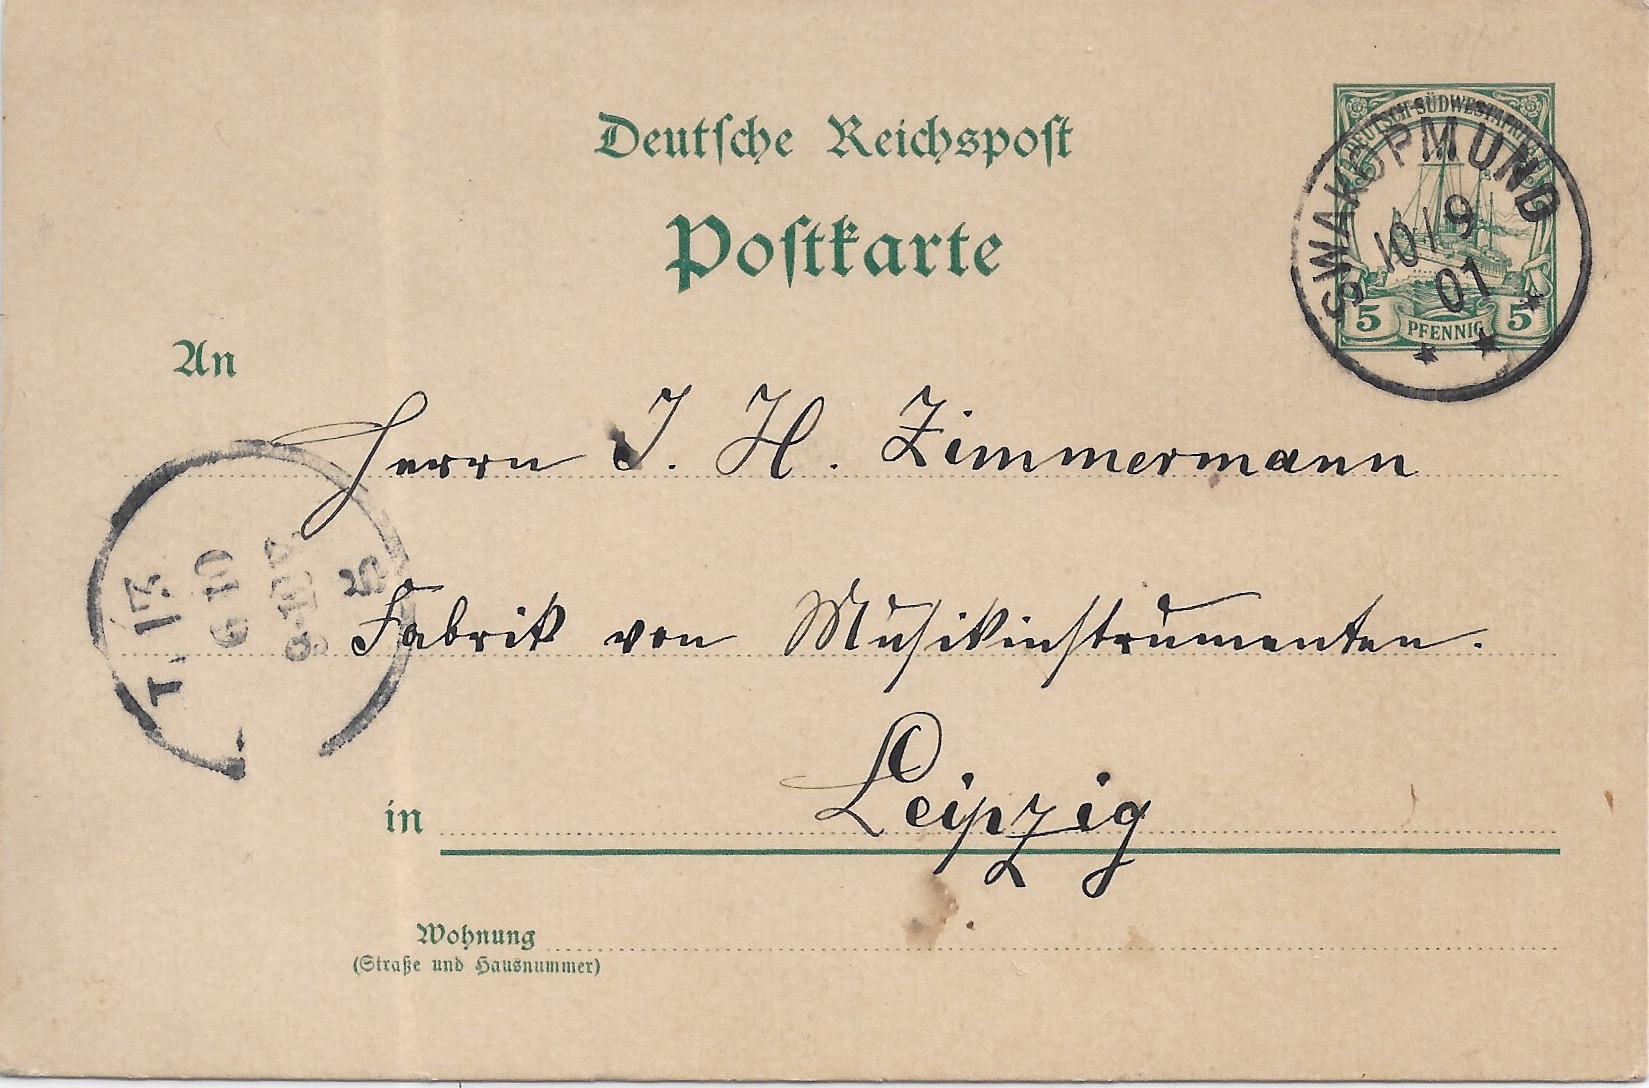 Deutsche Reichspost
Postkarte
DEUTSCH-SÜDWESTAFRIKA
5 PFENNIG 5
SWAKOPMUND
10/9
01
* * *
An
Herrn J. H. Zimmermann
Fabrik von Musikinstrumenten.
in Leipzig
Wohnung
(Straße und Hausnummer)
6 10
5